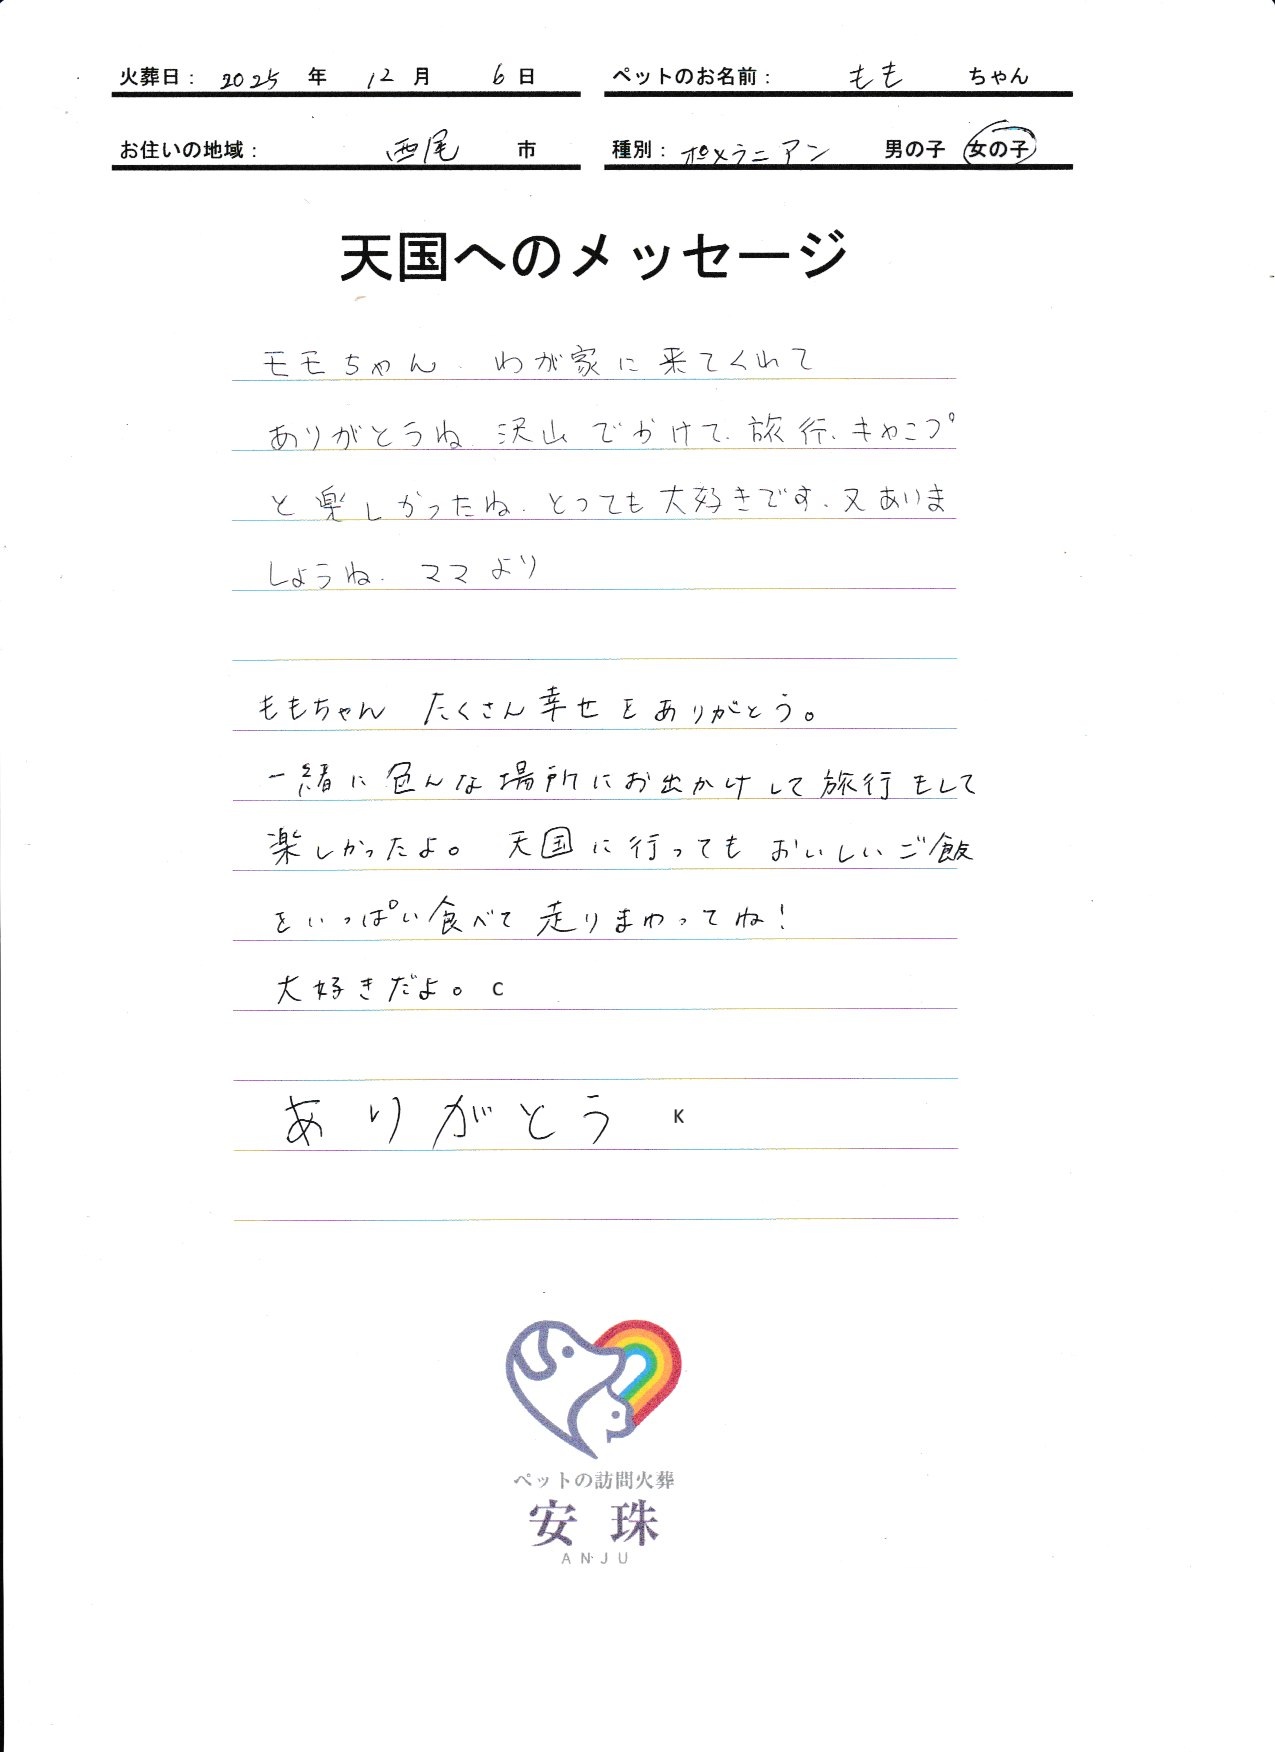 火葬日： 2025 年 12 月 6 日
ペットのお名前： もも ちゃん
お住いの地域： 西尾 市
種別： ポメラニアン 男の子 女の子
天国へのメッセージ
モモちゃん、わが家に来てくれて
ありがとうね、沢山でかけて、旅行、キャンプ
と楽しかったね、とっても大好きです、又あいま
しょうね、ママより
ももちゃん たくさん幸せをありがとう。
一緒に色んな場所にお出かけして旅行もして
楽しかったよ。 天国に行ってもおいしいご飯
をいっぱい食べて走りまわってね！
大好きだよ。 C
ありがとう K
ペットの訪問火葬
安珠
ANJU